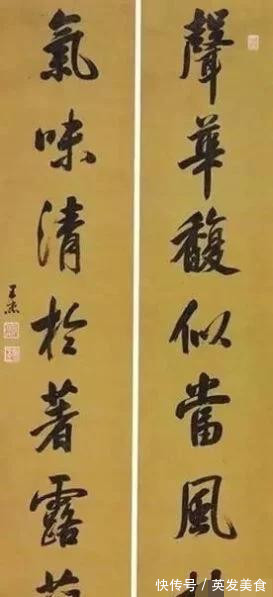 聲華馥似當風
氣味清於著露
王杰
快传号 / 英发美食